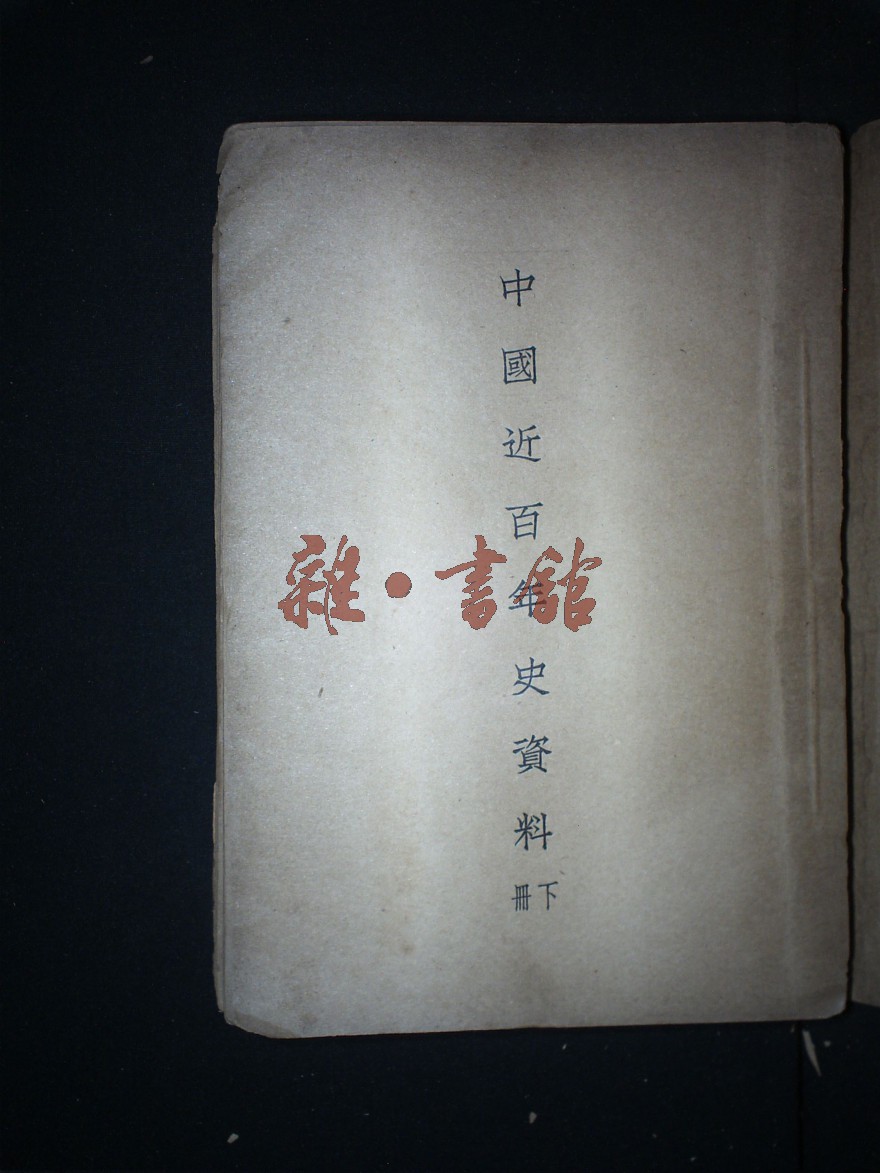 中國近百年史資料
下冊
雜·書館